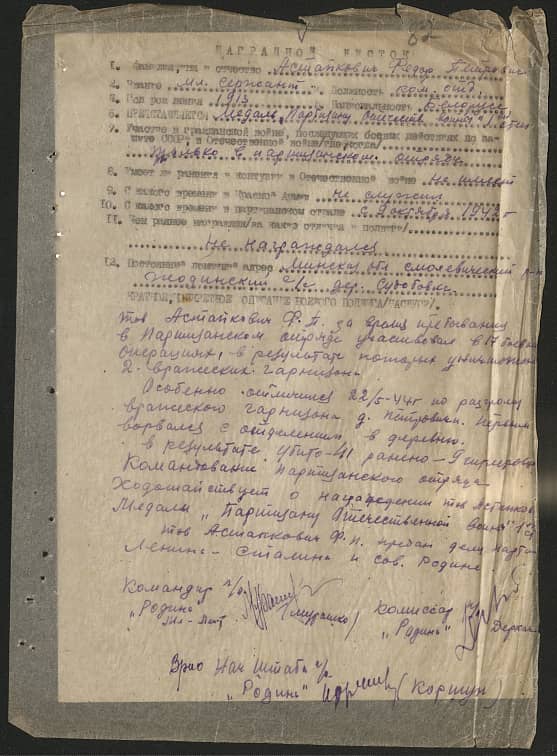 82
НАГРАДНОЙ ЛИСТОК
1. Фамилия, имя и отчество Астапкович Федор Петрович
2. Звание мл. сержант Должность ком. отд.
4. Год рождения 1913 Национальность Белорус
6. ПРЕДСТАВЛЯЕТСЯ Медаль "Партизану Отечеств. войны"
7. Участие в гражданской войне, последующих боевых действиях по за-
щите СССР, в Отечественной войне/где, когда/
только в партизанском отряде
8. Имеет ли ранения и контузии в Отечественной войне не имеет
9. С какого времени в Красной Армии не служил
10. С какого времени в партизанском отряде с 9 октября 1943 г
11. Чем ранее награжден/за какие отличия и
не награждался
12. Постоянный домашний адрес Минская обл смолевичский р-н
Жодинский с/с дер. Судобовка
КРАТКОЕ, КОНКРЕТНОЕ ОПИСАНИЕ БОЕВОГО ПОДВИГА/ЗАСЛУГ/.
тов Астапкович Ф.П. за время пребывания
в Партизанском отряде участвовал в 17 боевых
операциях, в результате которых уничтожено
2- вражеских гарнизона
Особенно отличился 22/5-44г по разгрому
вражеского гарнизона д. Петровичи. Первым
ворвался с отделением в деревню.
в результате убито-41 ранено-9 гитлеровцев
Командование Партизанского отряда
Ходотайствует о награждении тов Астапкович
Медалью "Партизану Отечественной войны" 1й ст
тов Астапкович Ф.П. предан делу партии
Ленина-Сталина и сов. Родине
Командир п/о Комиссар
"Родина" (Мурашко) "Родина"
Мл-Лейт.
Врио Нач штаба п/о
"Родина" (Коршун)